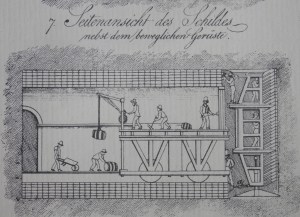 7 Seitenansicht des Schildes
nebst dem beweglichen Gerüste.